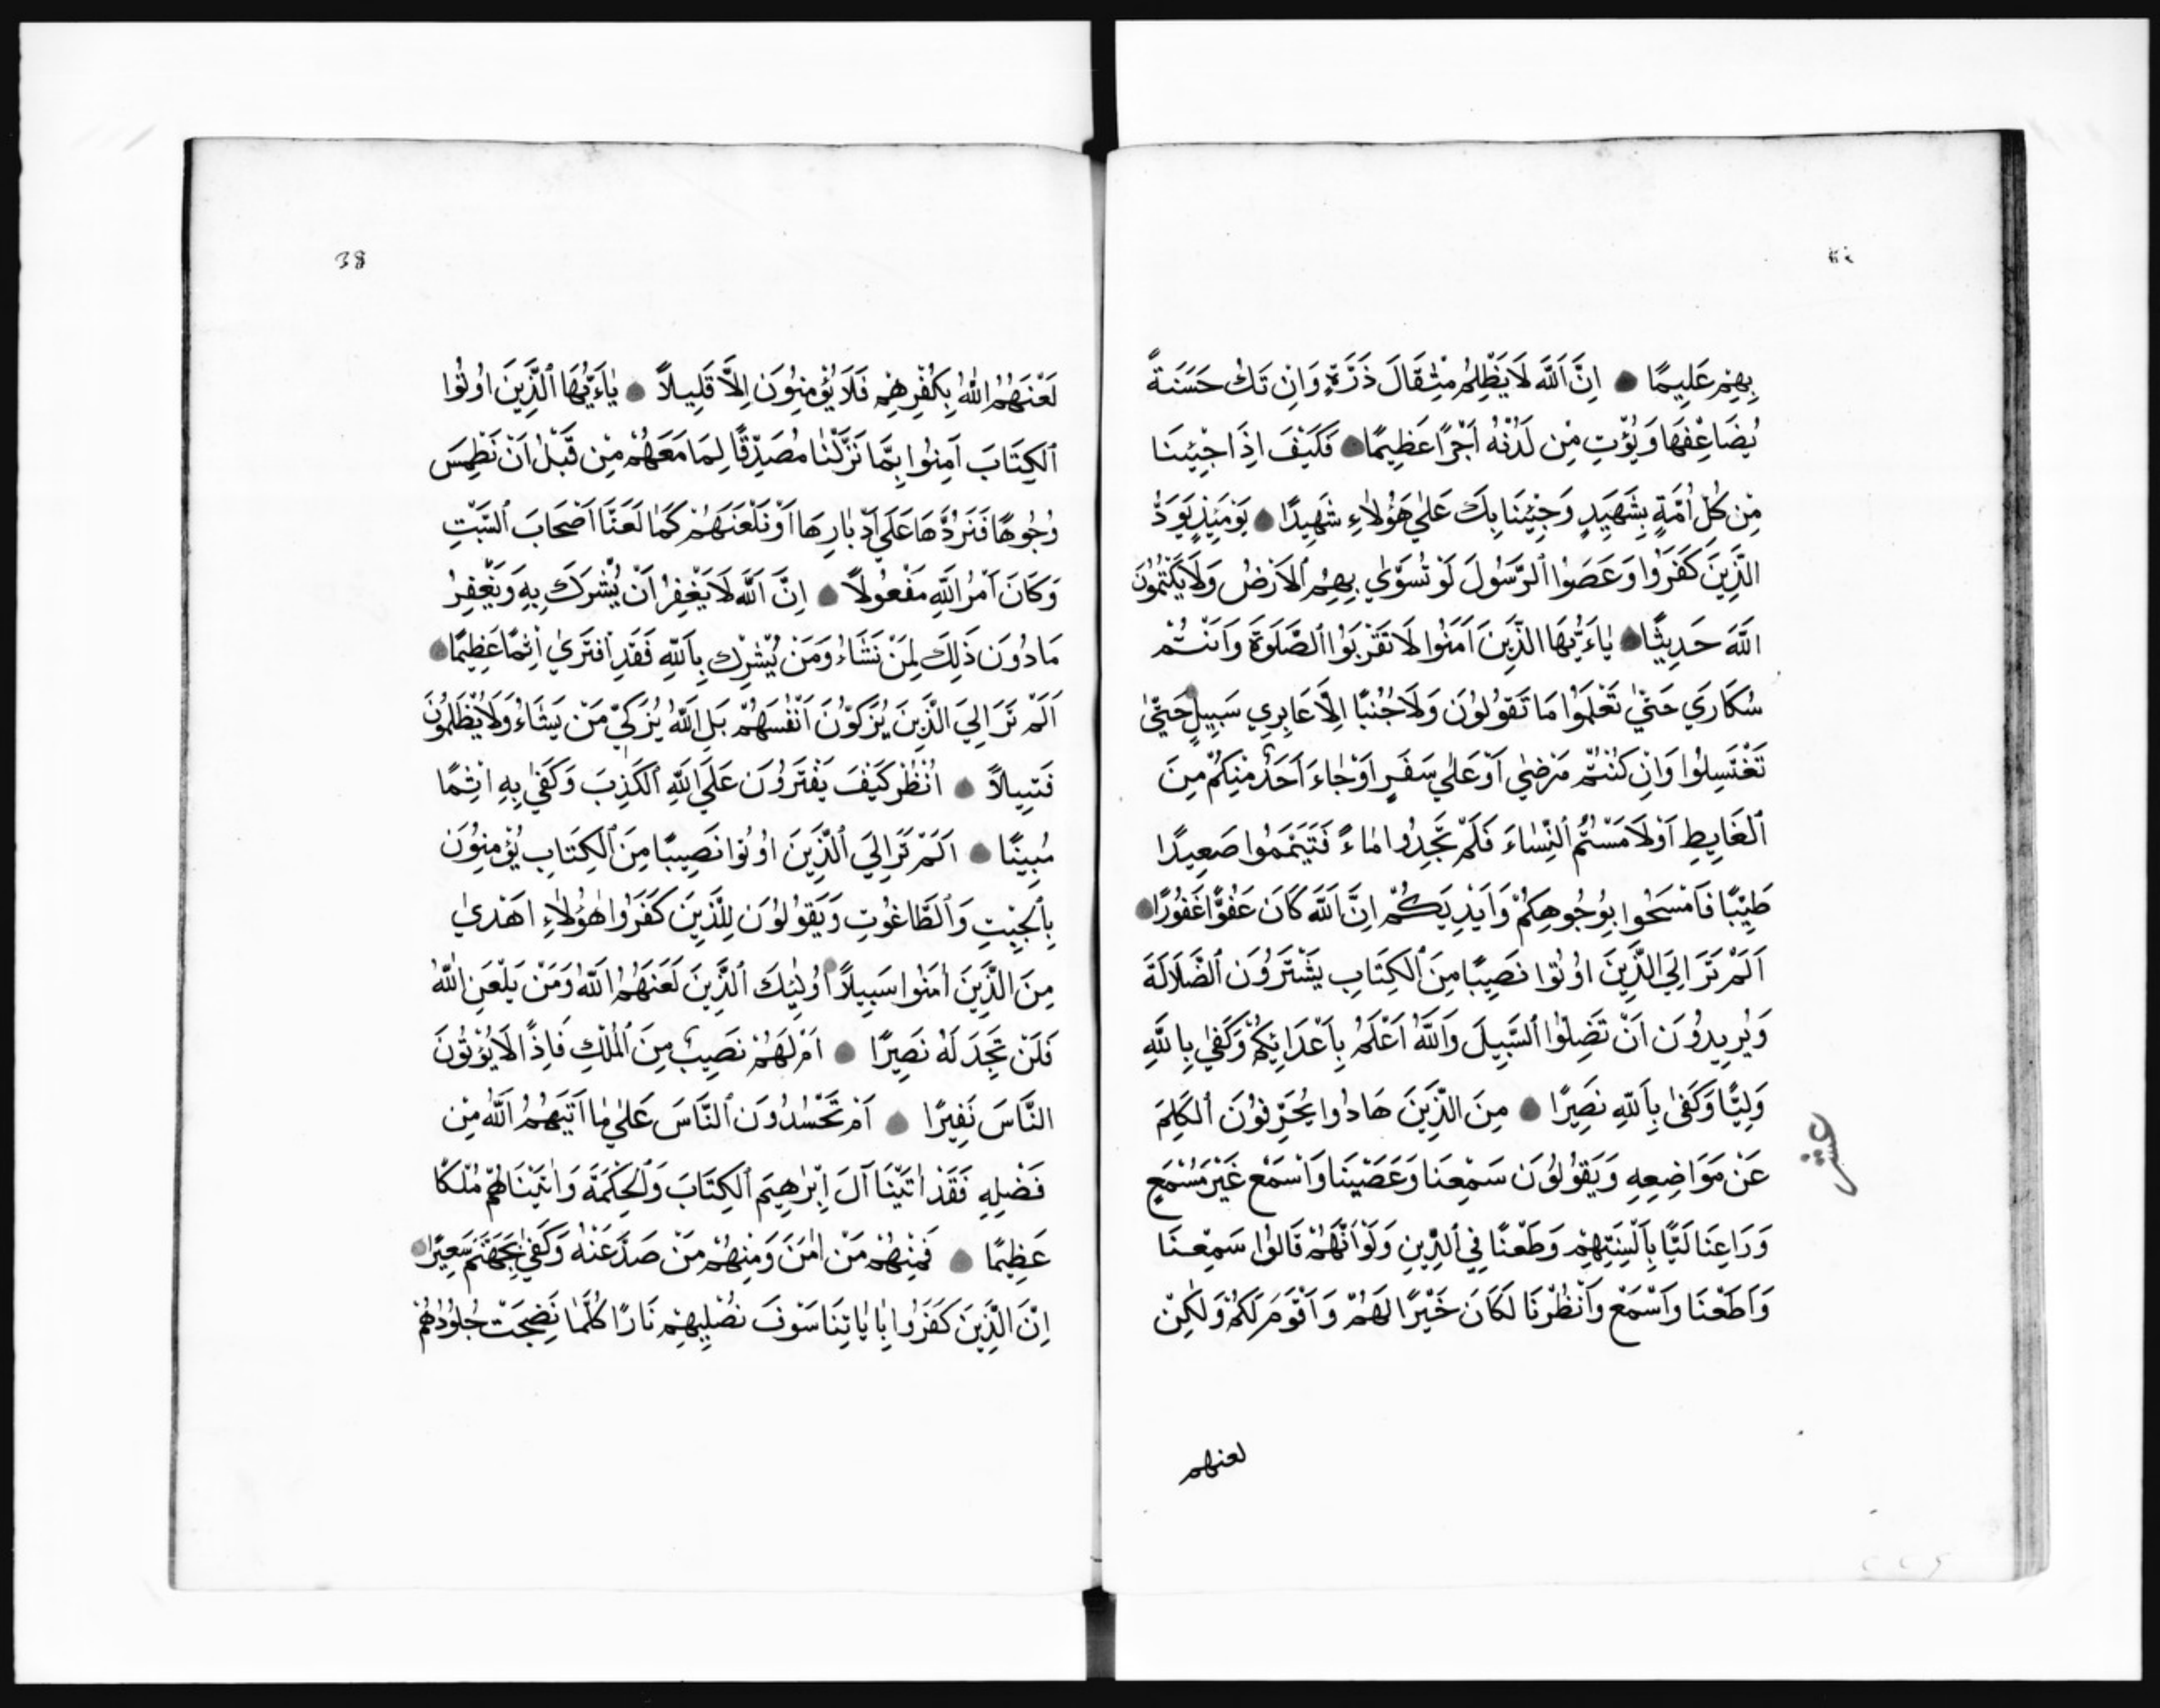 بِهِمْ عَلِيمًا اِنَّ اَللَّهَ لَا يَظْلِمُ مِثْقَالَ ذَرَّةٍ وَاِنْ تَكُ حَسَنَةً
يُضَاعِفْهَا وَيُؤْتِ مِنْ لَدُنْهُ اَجْرًا عَظِيمًا فَكَيْفَ اِذَا جِئْنَا
مِنْ كُلِّ اُمَّةٍ بِشَهِيدٍ وَجِئْنَا بِكَ عَلٰي هٰؤُلَاءِ شَهِيدًا يَوْمَئِذٍ يَوَدُّ
الَّذِينَ كَفَرُوا وَعَصَوُا ٱلرَّسُولَ لَوْ تُسَوّٰي بِهِمُ ٱلْاَرْضُ وَلَا يَكْتُمُونَ
اللَّهَ حَدِيثًا يٰاَءَيُّهَا الَّذِينَ اٰمَنُوا لَا تَقْرَبُوا ٱلصَّلَوةَ وَاَنْتُمْ
سُكَارَي حَتّٰي تَعْلَمُوا مَا تَقُولُونَ وَلَا جُنُبًا اِلَّا عَابِرِي سَبِيلٍ حَتّٰي
تَغْتَسِلُوا وَاِنْ كُنْتُمْ مَرْضٰي اَوْ عَلٰي سَفَرٍ اَوْ جَاءَ اَحَدٌ مِنْكُمْ مِنَ
ٱلْغَايِطِ اَوْ لَامَسْتُمُ ٱلنِّسَاءَ فَلَمْ تَجِدُوا مَاءً فَتَيَمَّمُوا صَعِيدًا
طَيِّبًا فَٱمْسَحُوا بِوُجُوهِكُمْ وَاَيْدِيَكُمْ اِنَّ اَللَّهَ كَانَ عَفُوًّا غَفُورًا
اَلَمْ تَرَ اِلَي الَّذِينَ اُوتُوا نَصِيبًا مِنَ ٱلْكِتَابِ يَشْتَرُونَ ٱلضَّلَالَةَ
وَيُرِيدُونَ اَنْ تَضِلُّوا ٱلسَّبِيلَ وَاللَّهُ اَعْلَمُ بِاَعْدَائِكُمْ وَكَفٰي بِاللَّهِ
وَلِيًّا وَكَفٰي بِاللَّهِ نَصِيرًا مِنَ الَّذِينَ هَادُوا يُحَرِّفُونَ ٱلْكَلِمَ
عَنْ مَوَاضِعِهِ وَيَقُولُونَ سَمِعْنَا وَعَصَيْنَا وَاَسْمَعْ غَيْرَ مُسْمَعٍ
وَرَاعِنَا لَيًّا بِاَلْسِنَتِهِمْ وَطَعْنًا فِي ٱلدِّينِ وَلَوْ اَنَّهُمْ قَالُوا سَمِعْنَا
وَاَطَعْنَا وَاَسْمَعْ وَاَنْظُرْنَا لَكَانَ خَيْرًا لَهُمْ وَاَقْوَمَ لَكُمْ وَلٰكِنْ
لعنهم
38
لَعْنَهُمُ اللّٰهُ بِكُفْرِهِمْ فَلَا يُؤْمِنُونَ اِلَّا قَلِيلًا يٰاَءَيُّهَا ٱلَّذِينَ اُوتُوا
ٱلْكِتَابَ اٰمِنُوا بِمَا نَزَّلْنَا مُصَدِّقًا لِمَا مَعَهُمْ مِنْ قَبْلِ اَنْ نَطْمِسَ
وُجُوهًا فَنَرُدَّهَا عَلَي اَدْبَارِهَا اَوْ نَلْعَنَهُمْ كَمَا لَعَنَّا اَصْحَابَ ٱلسَّبْتِ
وَكَانَ اَمْرُ اللَّهِ مَفْعُولًا اِنَّ اَللَّهَ لَا يَغْفِرُ اَنْ يُشْرَكَ بِهِ وَيَغْفِرُ
مَا دُونَ ذَلِكَ لِمَنْ نَشَاءُ وَمَنْ يُشْرِكْ بِاَللَّهِ فَقَدِ اَفْتَرَي اِثْمًا عَظِيمًا
اَلَمْ تَرَ اِلَيَ الَّذِينَ يُزَكُّونَ اَنْفُسَهُمْ بَلِ اَللَّهُ يُزَكِّي مَنْ يَشَاءُ وَلَا يُظْلَمُونَ
فَتِيلًا اُنْظُرْ كَيْفَ يَفْتَرُونَ عَلَي اَللَّهِ ٱلْكَذِبَ وَكَفٰي بِهِ اِثْمًا
مُبِينًا اَلَمْ تَرَ اِلَيَ ٱلَّذِينَ اُوتُوا نَصِيبًا مِنَ ٱلْكِتَابِ يُؤْمِنُونَ
بِٱلْجِبْتِ وَٱلطَّاغُوتِ وَيَقُولُونَ لِلَّذِينَ كَفَرُوا هٰؤُلَاءِ اَهْدٰي
مِنَ الَّذِينَ اٰمَنُوا سَبِيلًا اُولٰئِكَ ٱلَّذِينَ لَعَنَهُمُ اَللَّهُ وَمَنْ يَلْعَنِ اللّٰهُ
فَلَنْ تَجِدَ لَهُ نَصِيرًا اَمْ لَهُمْ نَصِيبٌ مِنَ ٱلْمُلْكِ فَاِذًا لَا يُؤْتُونَ
النَّاسَ نَفِيرًا اَمْ تَحْسُدُونَ ٱلنَّاسَ عَلٰي مَا اٰتَيهُمُ اَللَّهُ مِنْ
فَضْلِهِ فَقَدْ اٰتَيْنَا اٰلَ اِبْرٰهِيمَ ٱلْكِتَابَ وَٱلْحِكْمَةَ وَاٰتَيْنَاهُمْ مُلْكًا
عَظِيمًا فَمِنْهُمْ مَنْ اٰمَنَ وَمِنْهُمْ مَنْ صَدَّ عَنْهُ وَكَفٰي بِجَهَنَّمَ سَعِيرًا
اِنَّ الَّذِينَ كَفَرُوا بِاٰيَاتِنَا سَوْفَ نُصْلِيهِمْ نَارًا كُلَّمَا نَضِجَتْ جُلُودُهُمْ